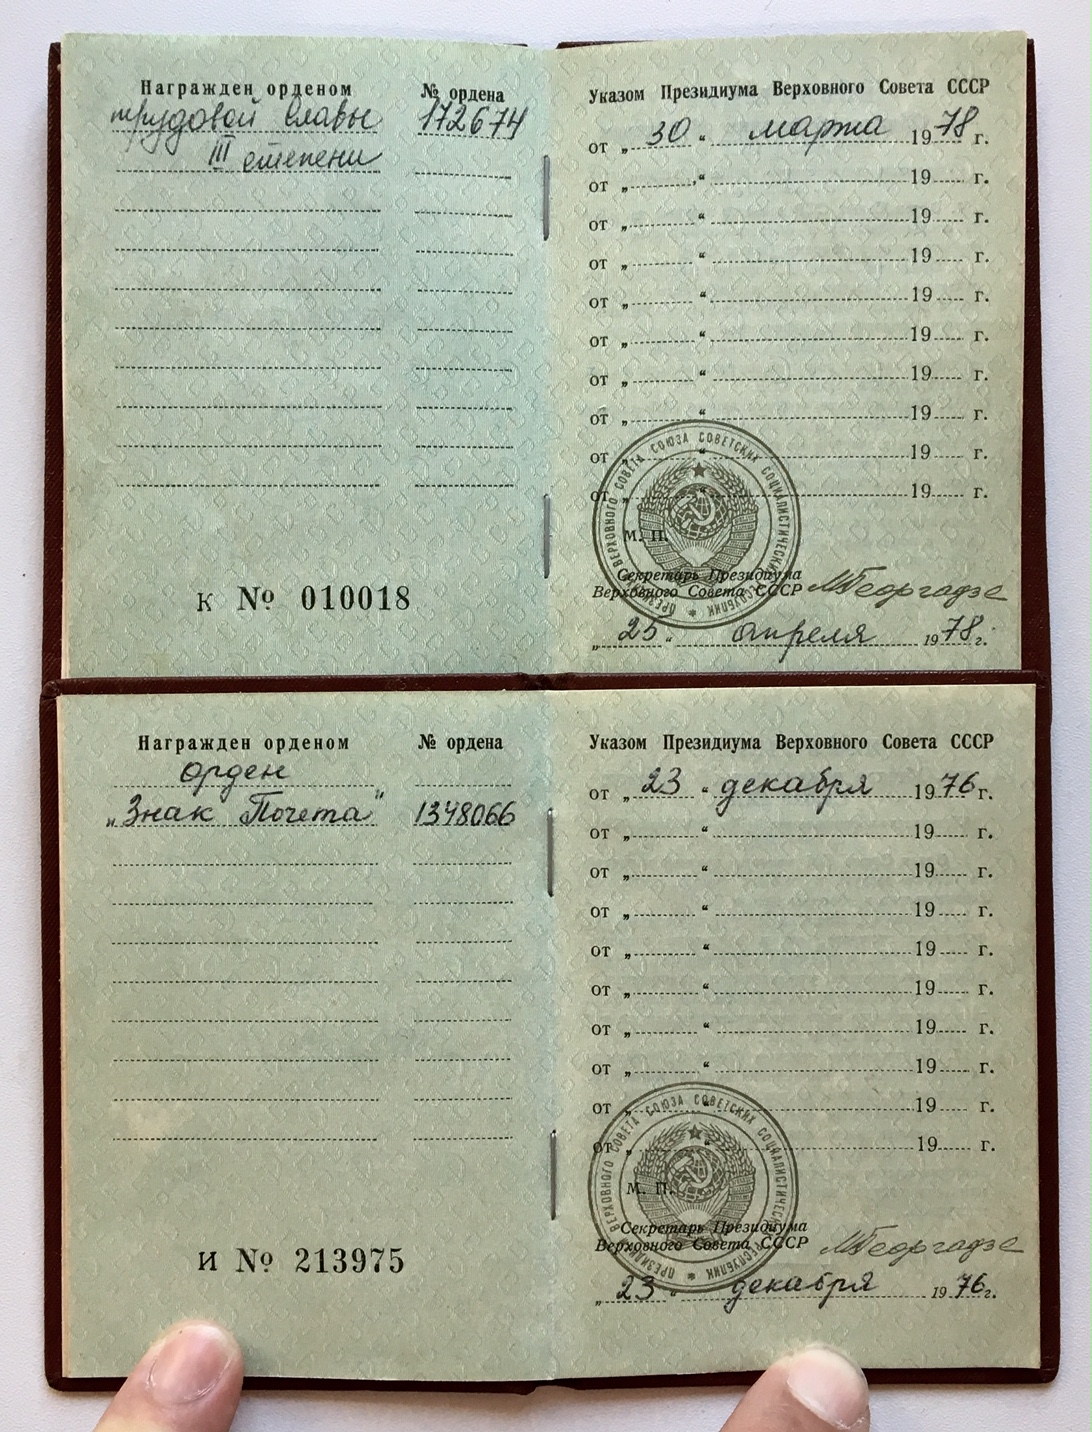 Награжден орденом № ордена
трудовой Славы 172674
III степени
К № 010018
Указом Президиума Верховного Совета СССР
от „ 30 “ марта 1978 г.
от „ “ 19 г.
от „ “ 19 г.
от „ “ 19 г.
от „ “ 19 г.
от „ “ 19 г.
от „ “ 19 г.
от „ “ 19 г.
от „ “ 19 г.
от „ “ 19 г.
ПРЕЗИДИУМ ВЕРХОВНОГО СОВЕТА СОЮЗА СОВЕТСКИХ СОЦИАЛИСТИЧЕСКИХ РЕСПУБЛИК
М. П.
Секретарь Президиума
Верховного Совета СССР МГеоргадзе
„ 25 “ апреля 1978 г.
Награжден орденом № ордена
орден
„Знак Почета“ 1348066
И № 213975
Указом Президиума Верховного Совета СССР
от „ 23 “ декабря 1976 г.
от „ “ 19 г.
от „ “ 19 г.
от „ “ 19 г.
от „ “ 19 г.
от „ “ 19 г.
от „ “ 19 г.
от „ “ 19 г.
от „ “ 19 г.
от „ “ 19 г.
ПРЕЗИДИУМ ВЕРХОВНОГО СОВЕТА СОЮЗА СОВЕТСКИХ СОЦИАЛИСТИЧЕСКИХ РЕСПУБЛИК
М. П.
Секретарь Президиума
Верховного Совета СССР МГеоргадзе
„ 23 “ декабря 1976 г.